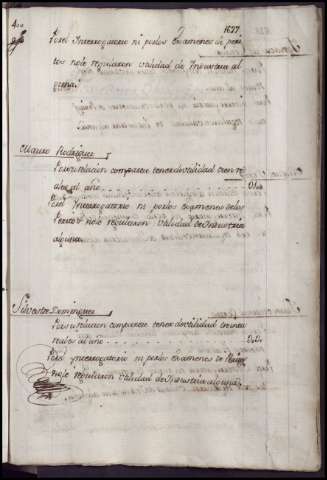 1627
Por el Interrogatorio ni por los examenes de peri
tos no le regularon Utilidad de Industria al
guna
Mauro Rodriguez
Por su relacion comparece tener de Utilidad cien rs
al año
Por el Interrogatorio ni por los examenes de los
Peritos no le regularon Utilidad de Industria
alguna
Silvestre Dominguez
Por su relacion comparece tener de Utilidad
reales al año
Por el Interrogatorio ni por los examenes de
no le regularon Utilidad de Industria alguna